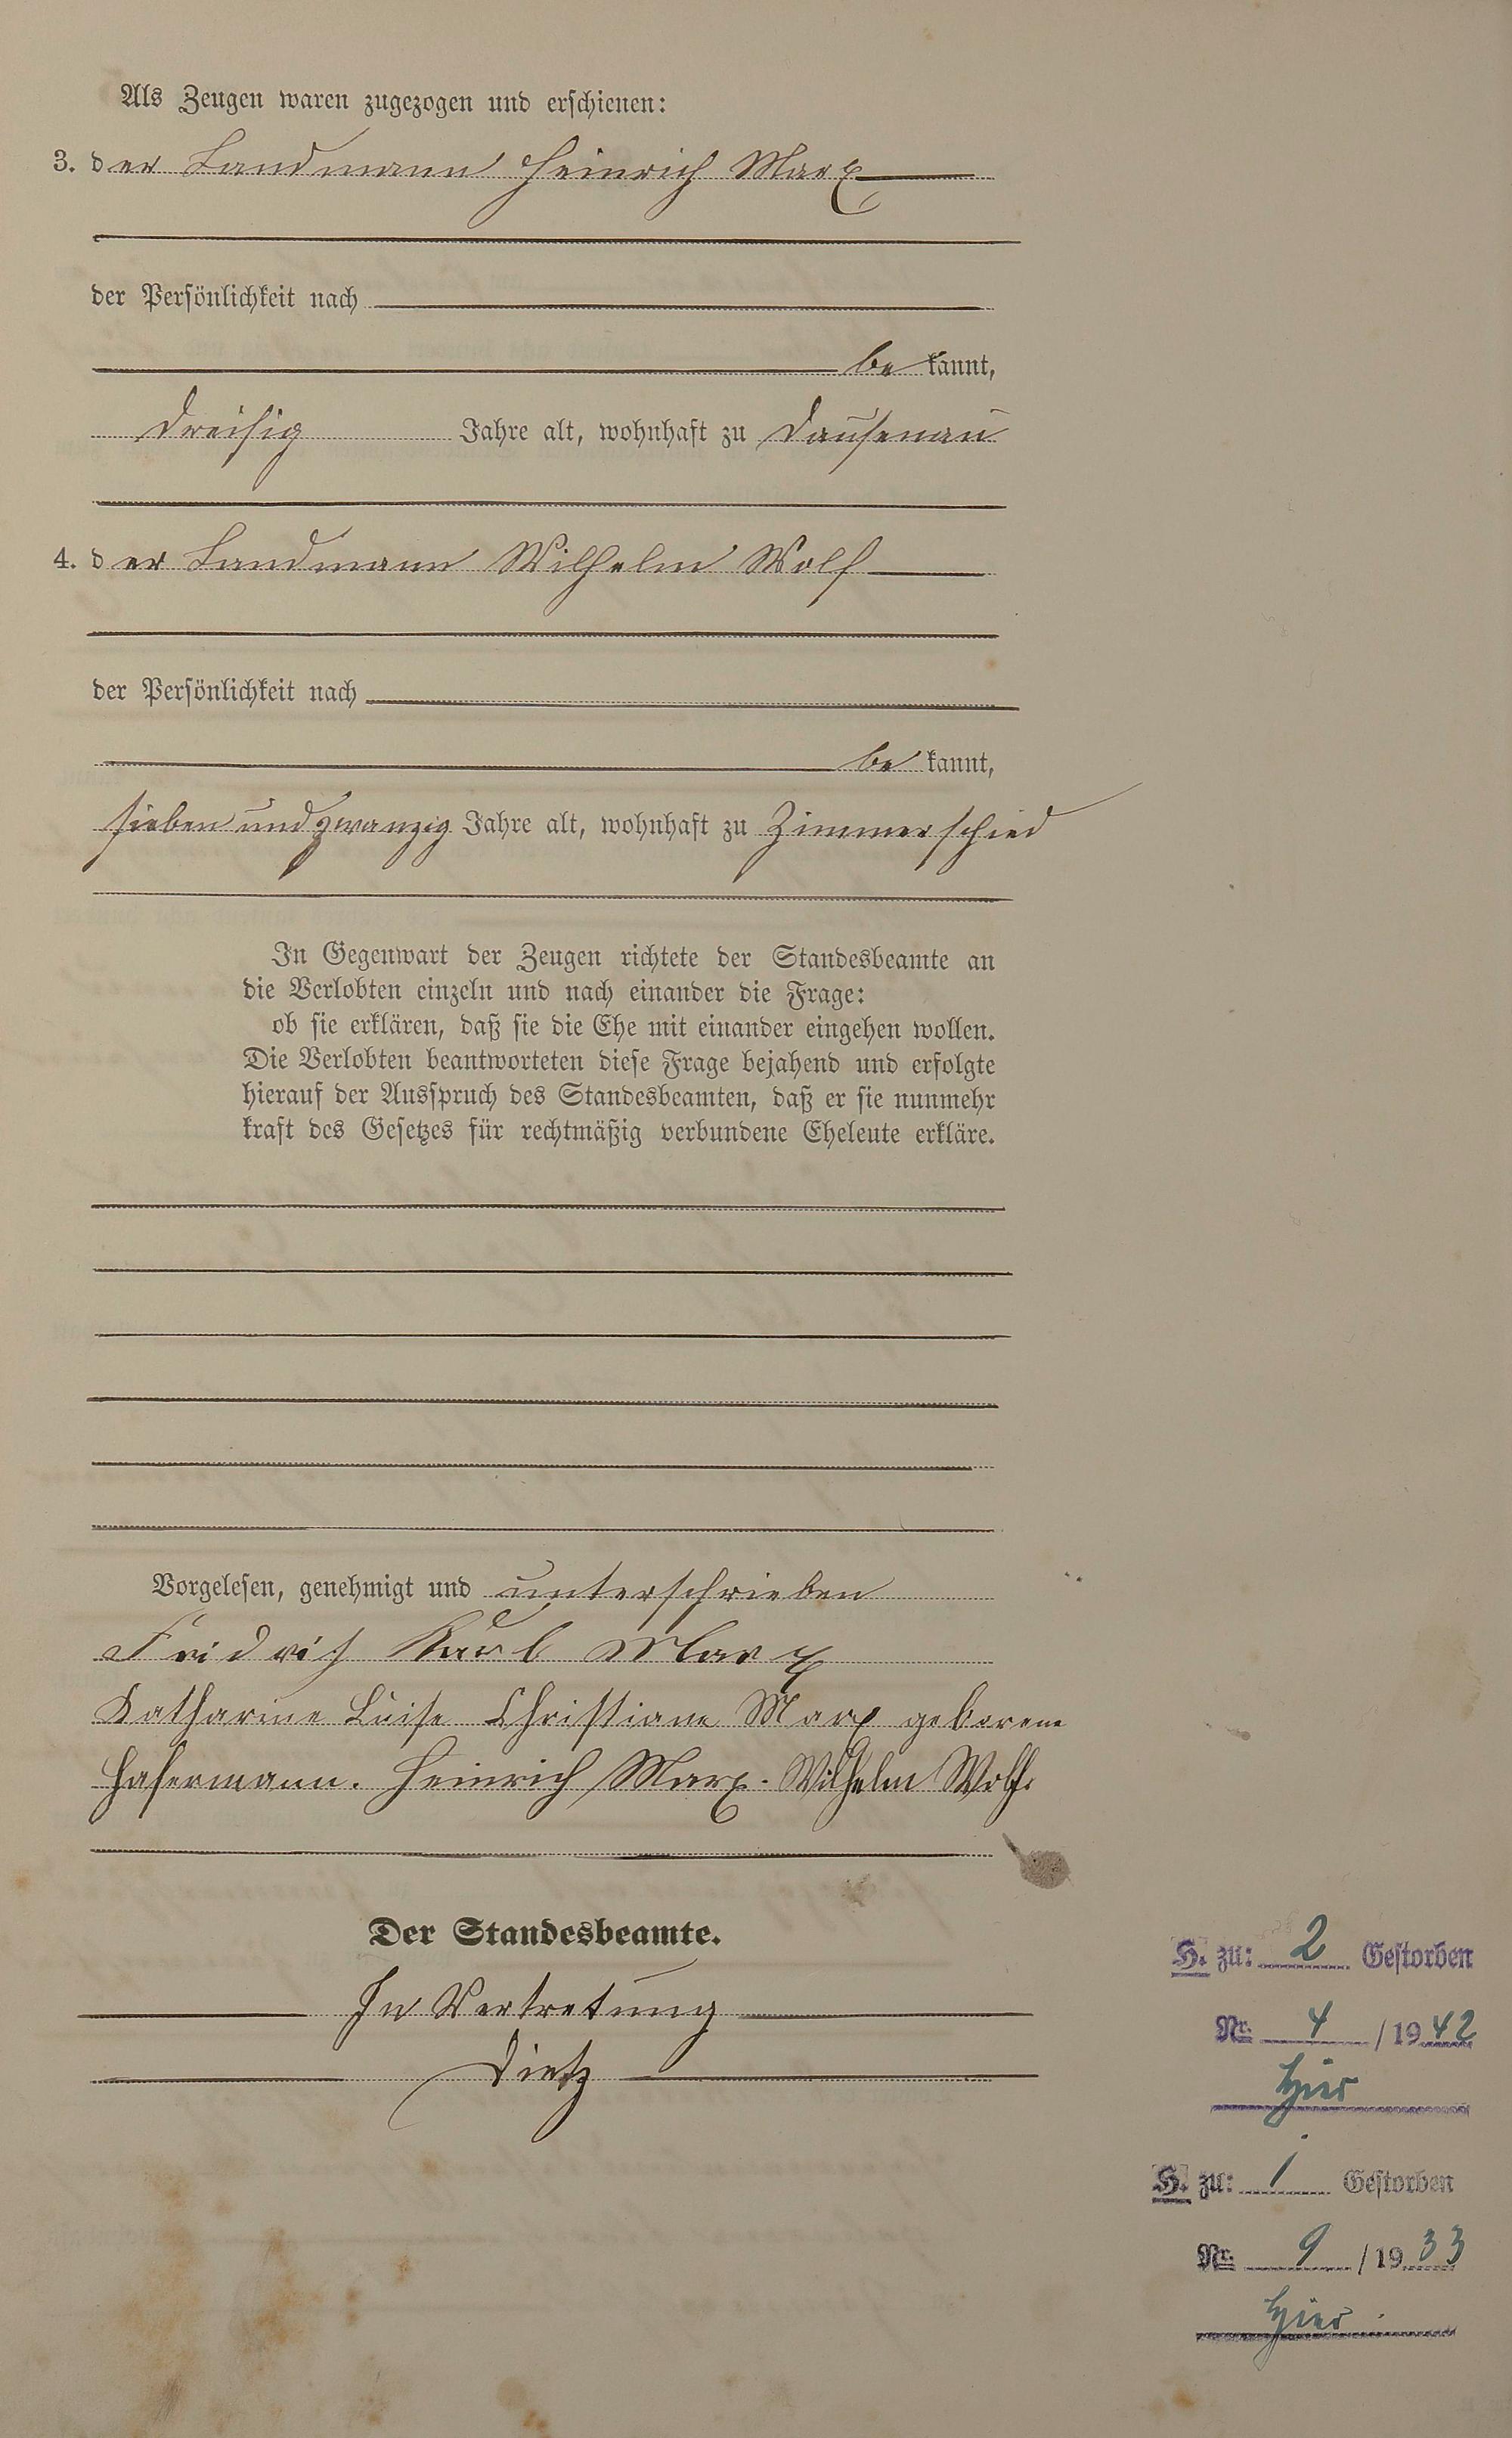 Als Zeugen waren zugezogen und erschienen:
3. der Landmann Heinrich Marx
der Persönlichkeit nach
be kannt,
dreisig Jahre alt, wohnhaft zu Dausenau
4. der Landmann Wilhelm Wolf
der Persönlichkeit nach
be kannt,
sieben und zwanzig Jahre alt, wohnhaft zu Zimmerschied
In Gegenwart der Zeugen richtete der Standesbeamte an
die Verlobten einzeln und nach einander die Frage:
ob sie erklären, daß sie die Ehe mit einander eingehen wollen.
Die Verlobten beantworteten diese Frage bejahend und erfolgte
hierauf der Ausspruch des Standesbeamten, daß er sie nunmehr
kraft des Gesetzes für rechtmäßig verbundene Eheleute erkläre.
Vorgelesen, genehmigt und unterschrieben
Fridrich Karl Marx
Katharine Luise Christiane Marx geborene
Hasermann. Heinrich Marx. Wilhelm Wolf.
Der Standesbeamte.
In Vertretung
Dietz
H. zu: 2 Gestorben
Nr. 4 / 1942
hier
H. zu: 1 Gestorben
Nr. 9 / 1933
hier